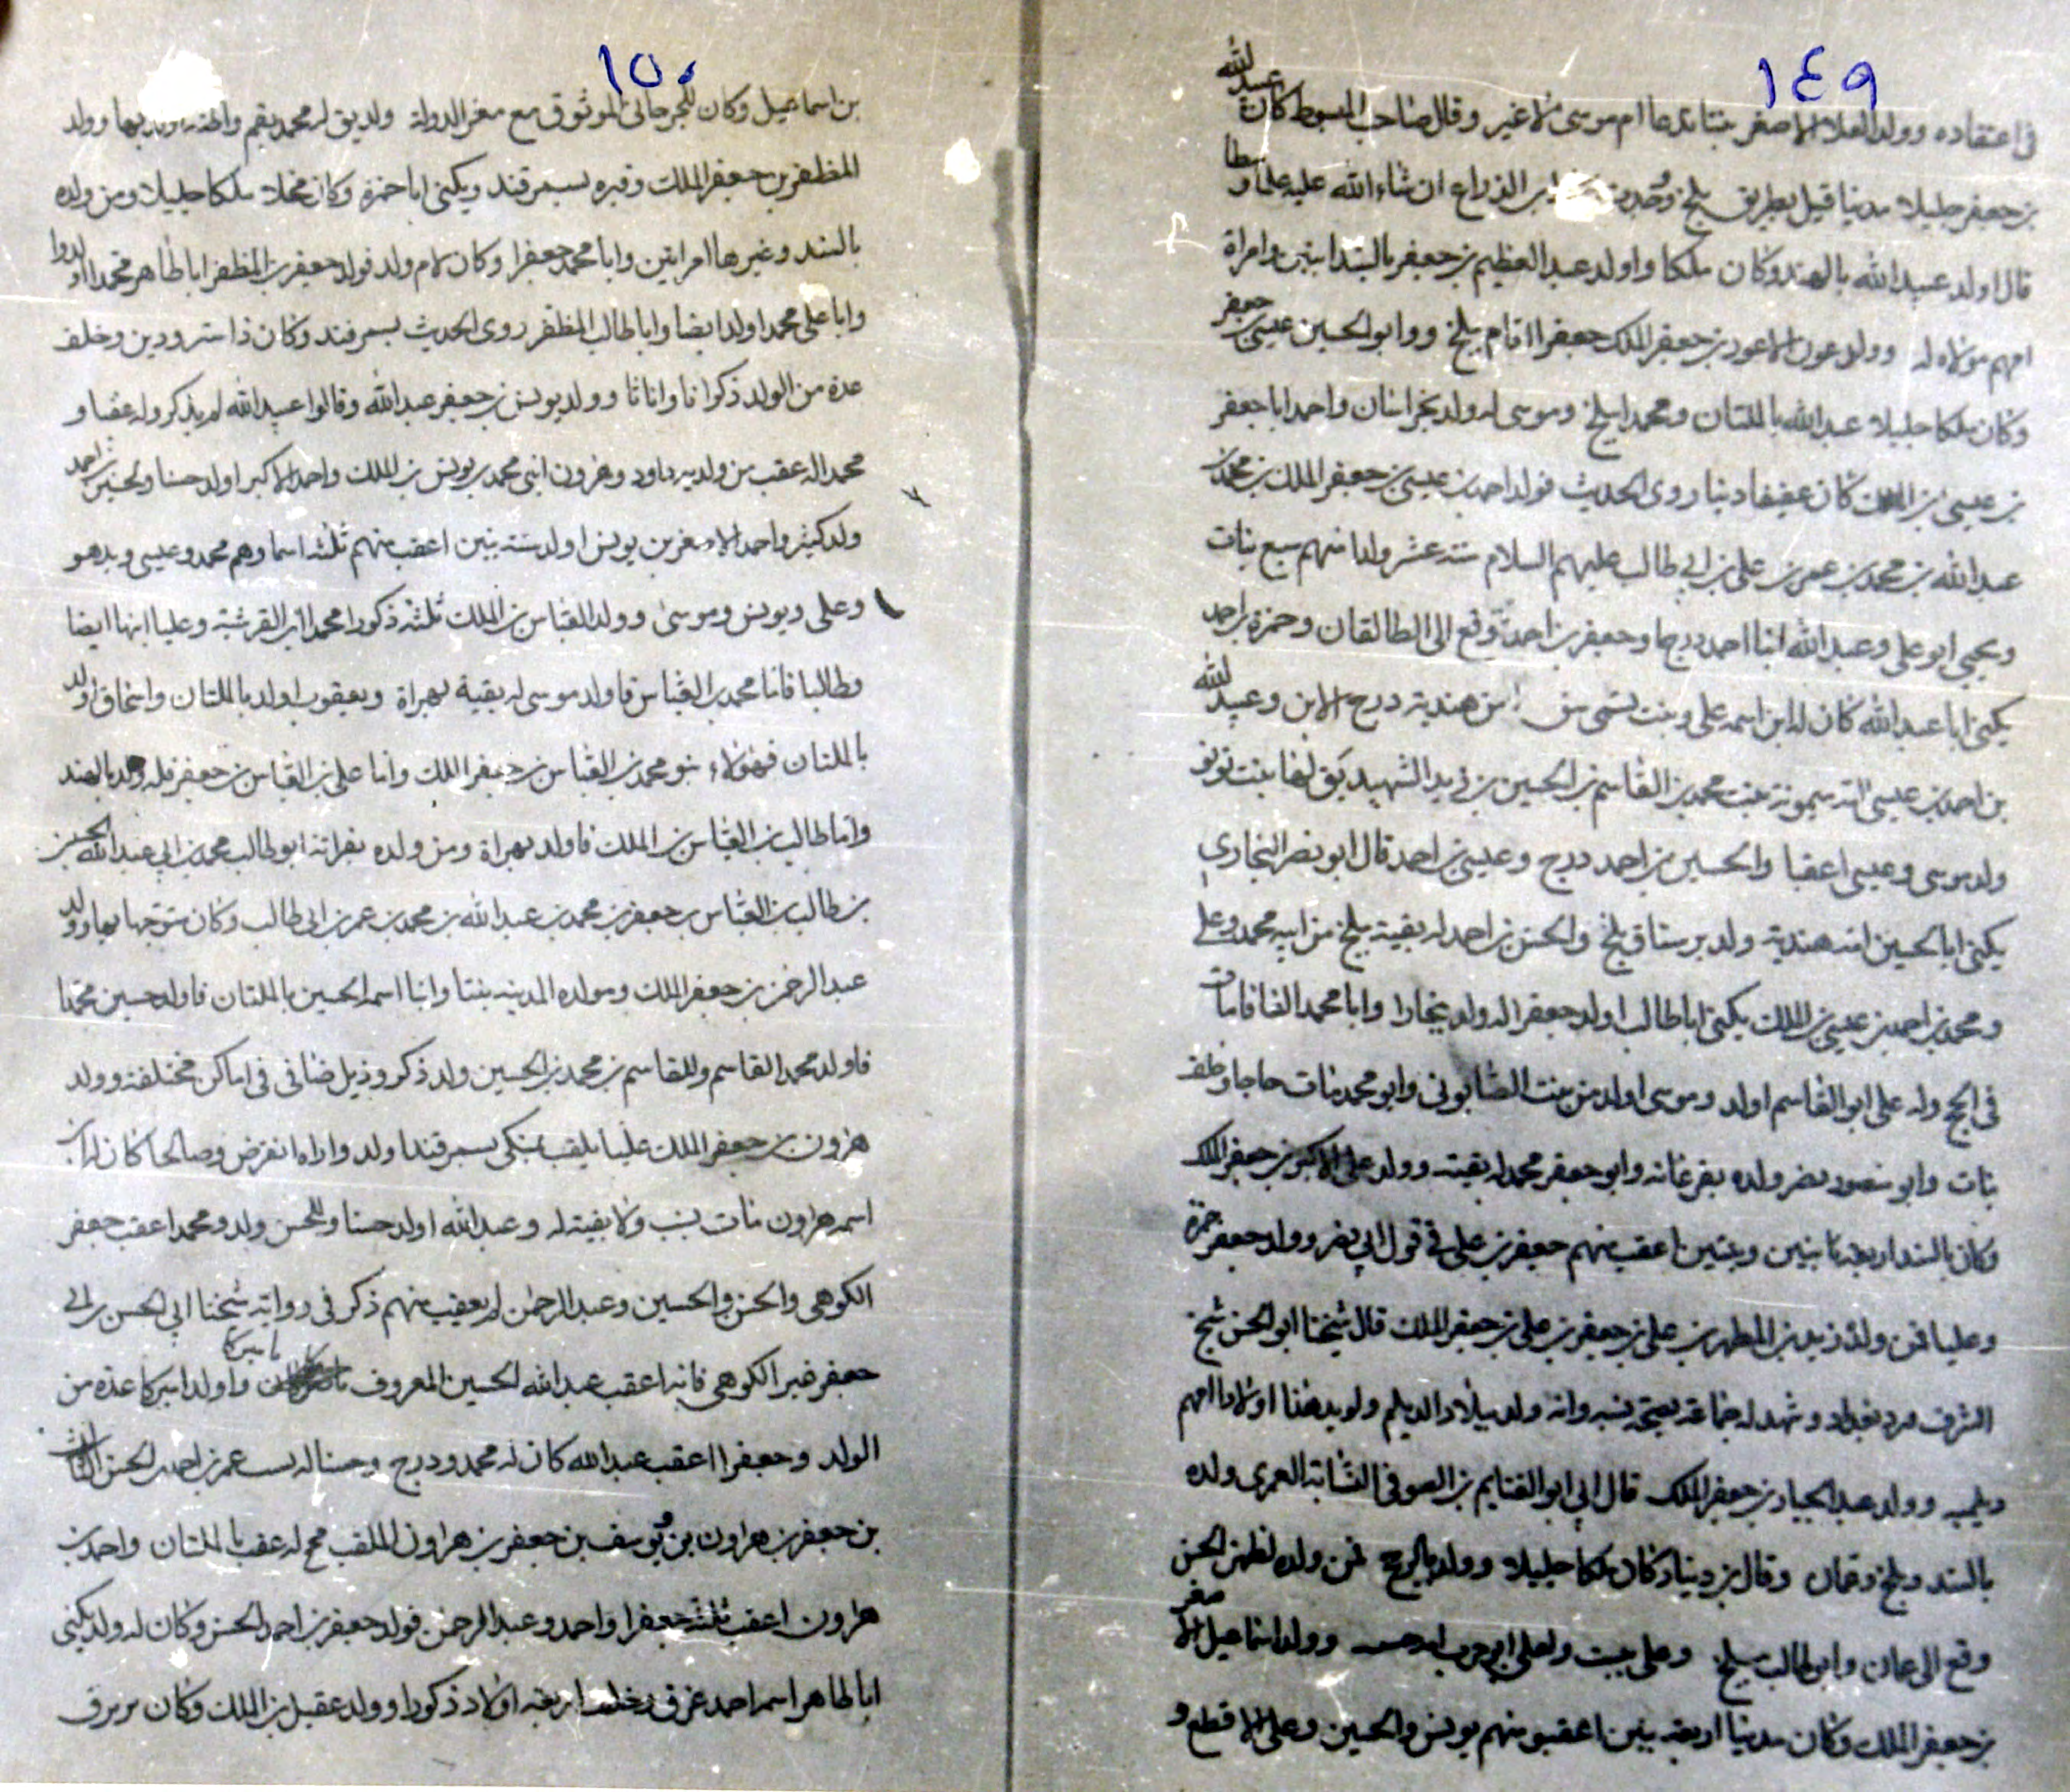 ١٤٩
في اعتقاده وولد العلاء الاصغر بنتا تدعا ام موسى لا غير وقال صاحب المبسوط كان عبيد الله
بن جعفر جليلا مدنيا قيل بطريق بلخ الذراع ان شاء الله عليه علما و
قال اولد عبيد الله بالهند وكان ملكا واولد عبد العظيم بن جعفر بالسند ابنين وامراة
امهم مولاه له وولد عون الاعور بن جعفر الملك جعفرا اقام ببلخ وولد ابو الحسين عيسى بن جعفر
وكان ملكا جليلا عبد الله بالملتان ومحمدا ببلخ وموسى له ولد بخراسان واحمد ابا جعفر
بن عيسى بن الملك كان عفيفا دينا روى الحديث فولد احمد بن عيسى بن جعفر الملك بن محمد بن
عبد الله بن محمد بن عمر بن علي بن ابي طالب عليهم السلام ستة عشر ولدا منهم سبع بنات
ويحيى ابو علي وعبد الله ابنا احمد درجا وجعفر بن احمد وقع الى الطالقان وحمزة بن احمد
يكنى ابا عبد الله كان له ابن اسمه علي وبنت تسمى من هندية درج الابن وعبيد الله
بن احمد بن عيسى امه ميمونة بنت محمد بن القاسم بن الحسين بن زيد الشهيد
ولد موسى وعيسى اعقبا والحسين بن احمد درج وعيسى بن احمد قال ابو نصر البخاري
يكنى ابا الحسين امه هندية ولد برستاق بلخ والحسن بن احمد له بقية ببلخ من ابنيه محمد وعلي
ومحمد بن احمد بن عيسى بن الملك يكنى ابا طالب اولد جعفرا له ولد ببخارا وابا محمد مات
في الحج وله علي ابو القاسم اولد وموسى اولد من بنت الصابوني وابو محمد مات حاجا وخلف
بنات وابو منصور نصر ولده بفرغانه وابو جعفر محمد له بقيته وولد علي الاكبر بن جعفر الملك
وكان بالسند اربعة بنين وبنتين اعقب منهم جعفر بن علي في قول ابي نصر وولد جعفر حمزة
وعليا فمن ولده زيد بن المطهر بن علي بن جعفر بن علي بن جعفر الملك قال شيخنا ابو الحسن شيخ
الشرف ورد بغداد وشهد له جماعة بصحة نسبه وانه ولد ببلاد الديلم اولادا امهم
ديلميه وولد عبد الجبار بن جعفر الملك قال ابي ابو الغنايم بن الصوفي النسابة العمري ولده
بالسند وبلخ وعمان وقال بن دينار كان ملكا جليلا وولد فمن ولده الحسن
وقع الى عمان وابو طالب ببلخ وعلي وولد اسماعيل الاصغر
بن جعفر الملك وكان مدنيا اربعة بنين اعقبو منهم يونس والحسين وعلي الاقطع و
١٥٠
بن اسماعيل وكان للجرجاني الموثوق مع معز الدولة ولد بقم وولد
المظفر بن جعفر الملك وقبره بسمرقند ويكنى ابا حمزة وكان ملكا جليلا ومن ولده
بالسند وغيرها امراتين وابا محمد جعفرا وكان لام ولد فولد جعفر بن المظفر ابا طاهر محمدا اولدوا
وابا علي محمد اولد ايضا وابا طالب المظفر روى الحديث بسمرقند وكان ذا ستر ودين وخلف
عدة من الولد ذكرانا واناثا وولد يونس بن جعفر عبد الله وقالوا عبيد الله لم يذكر وله عقبا و
محمدا له عقب من ولديه داود وهرون ابني محمد بن يونس بن الملك واحمد الاكبر اولد حسنا وللحسن بن احمد
ولد كثير واحمد الاصغر بن يونس اولد ستة بنين اعقب منهم ثلثه اسما وهم محمد وعيسى
وعلي ويونس وموسى وولد العباس بن الملك ثلثه ذكورا محمدا ابن القرشية وعليا ايضا
وطالبا فاما محمد بن العباس فاولد موسى له بقية بهراة ويعقوب اولد بالملتان واسحاق اولد
بالملتان فهولاء بنو محمد بن العباس بن جعفر الملك واما علي بن العباس بن جعفر فله ولد بالهند
واما طالب بن العباس بن الملك فاولد بهراة ومن ولده بفراته ابو طالب محمد بن ابي عبد الله الحسين
بن طالب بن العباس بن جعفر بن محمد بن عبد الله بن محمد بن عمر بن ابي طالب وكان متوجها بها وولد
عبد الرحمن بن جعفر الملك ومولده المدينه بنتا وابنا اسمه الحسين بالملتان فاولد حسين محمدا
فاولد محمد القاسم وللقاسم بن محمد بن الحسين ولد ذكر وذيل ضافي في اماكن مختلفة وولد
هرون بن جعفر الملك عليا يلقب بسمرقند اولد واراه انقرض وصالحا كان له ابن
اسمه هارون مات ولا بقية له وعبد الله اولد حسنا وللحسن ولد ومحمد اعقب جعفر
الكوهي والحسن والحسين وعبد الرحمن لم يعقب منهم ذكر في رواية شيخنا ابي الحسن بن ابي
جعفر غير الكوهي فانه اعقب عبد الله الحسين المعروف باميركا واولد اميركا عدة من
الولد وجعفرا اعقب عبد الله كان له محمد ودرج وحسنا له عمر بن احمد بن الحسن
بن جعفر بن هارون بن يوسف بن جعفر بن هارون الملقب مج له عقب بالملتان واحمد بن
هارون اعقب ثلثه جعفرا واحمد وعبد الرحمن فولد جعفر بن احمد الحسن وكان له ولد يكنى
ابا طاهر اسمه احمد غرق وخلف اربعة اولاد ذكورا وولد عقيل بن الملك وكان